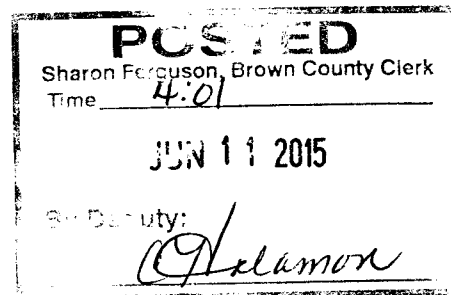 POSTED
Sharon Ferguson, Brown County Clerk
Time 4:01
JUN 11 2015
By Deputy: